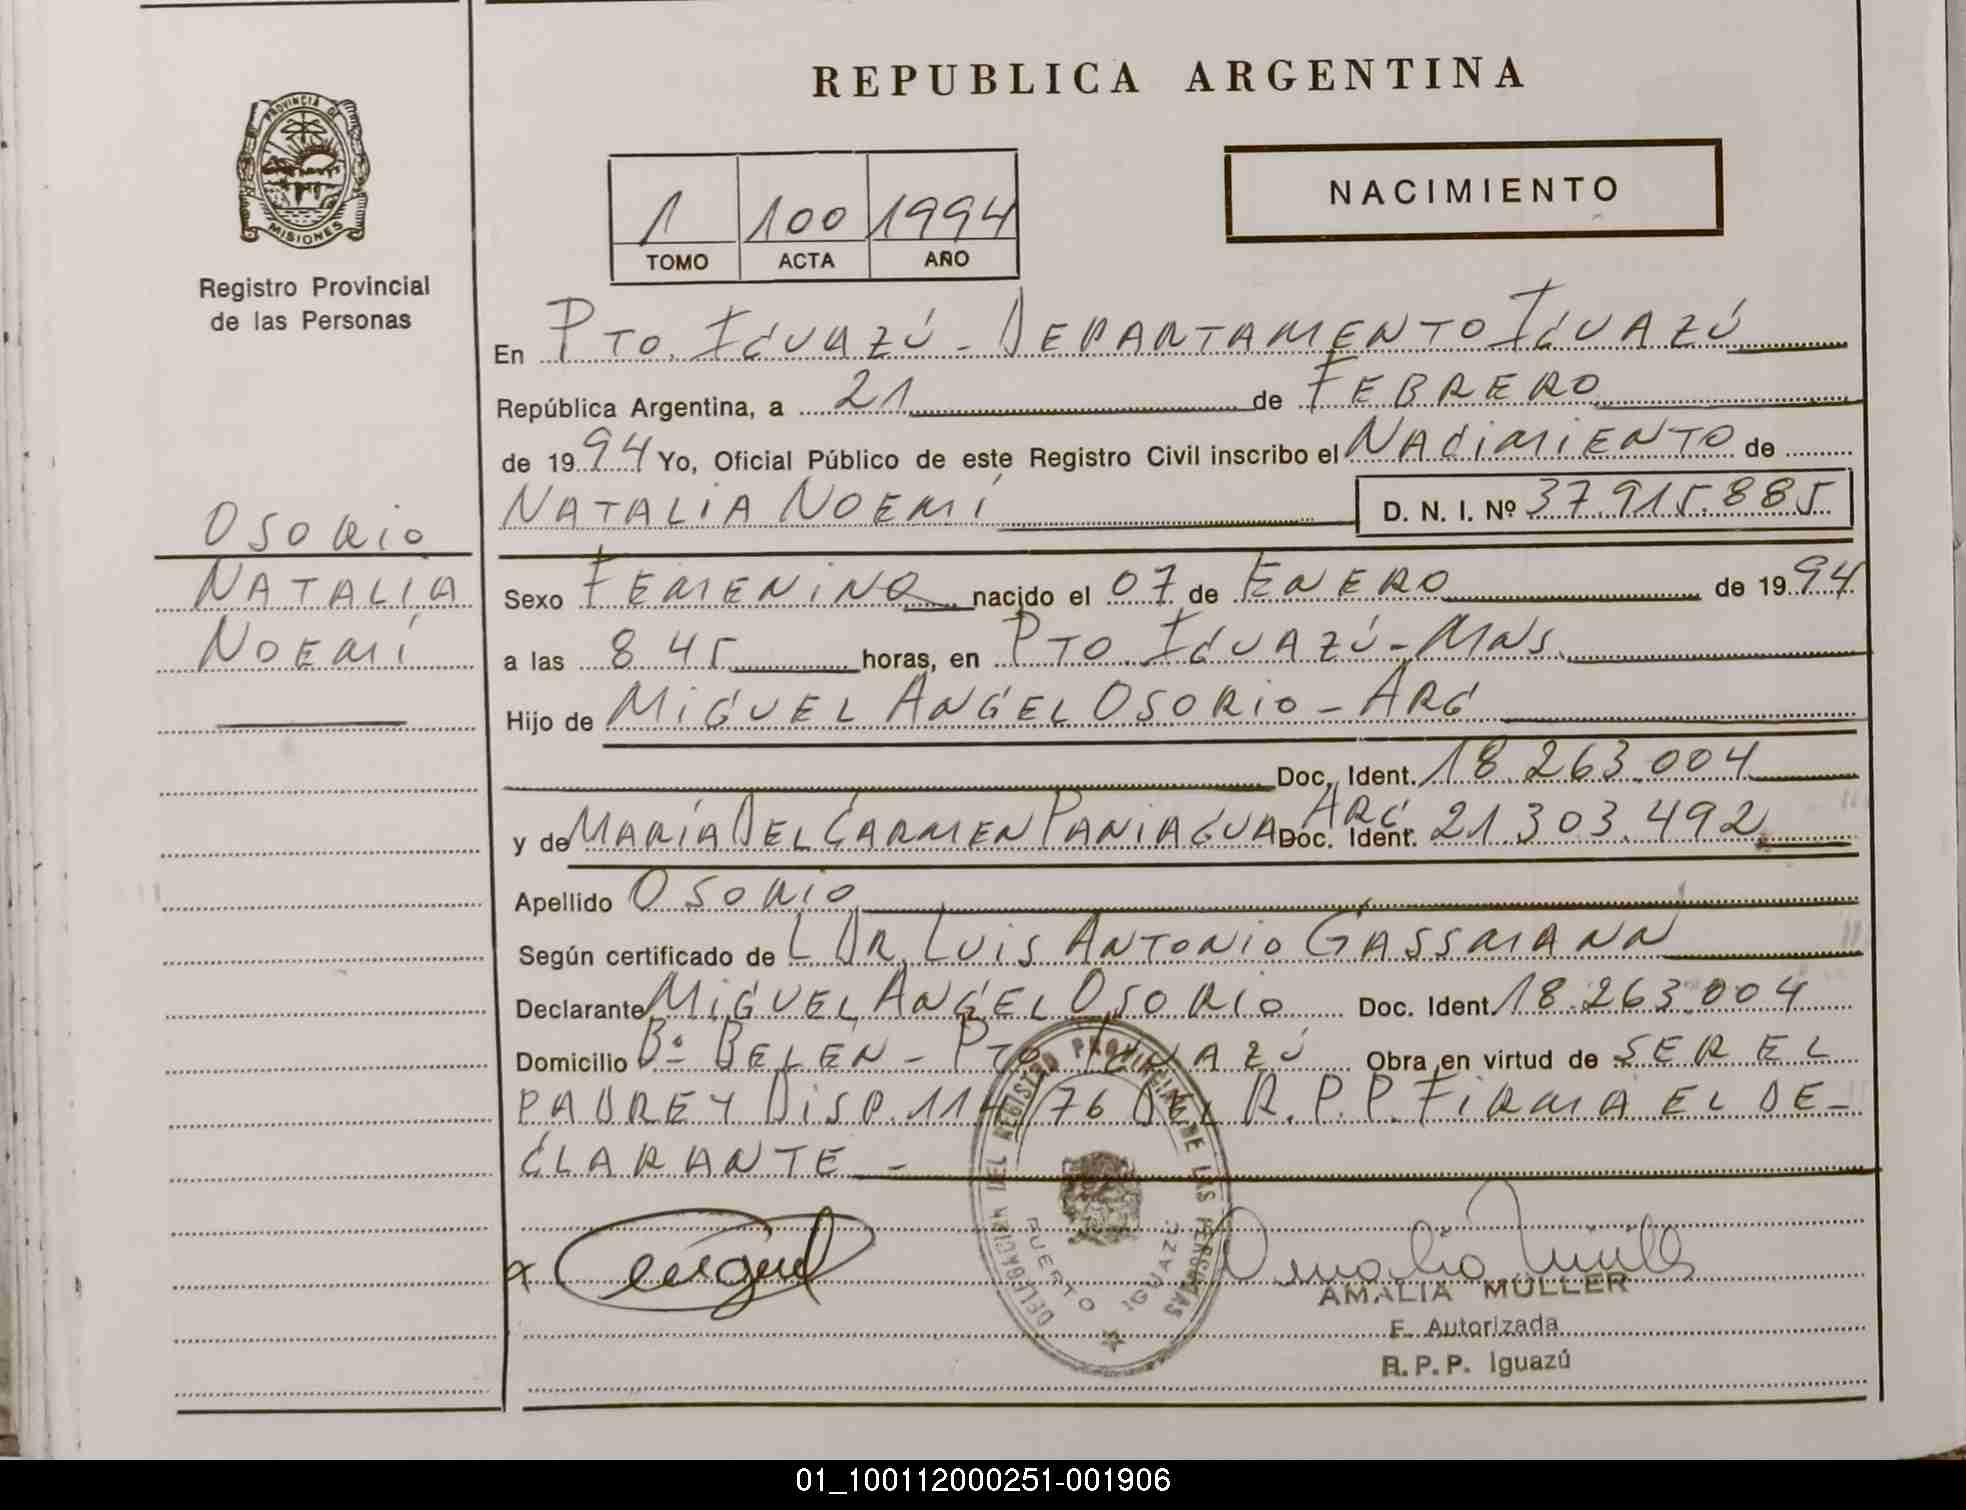 REPUBLICA ARGENTINA
PROVINCIA DE MISIONES
Registro Provincial
de las Personas
1 100 1994
TOMO ACTA AÑO
NACIMIENTO
En PTO. IGUAZÚ - DEPARTAMENTO IGUAZÚ
República Argentina, a 21 de FEBRERO
de 1994 Yo, Oficial Público de este Registro Civil inscribo el NACIMIENTO de
NATALIA NOEMÍ D. N. I. Nº 37.915.885
OSORIO
NATALIA
NOEMÍ
Sexo FEMENINO nacido el 07 de ENERO de 1994
a las 8 45 horas, en PTO. IGUAZÚ - MNS.
Hijo de MIGUEL ANGEL OSORIO - ARG
Doc. Ident. 18.263.004
y de MARÍA DEL CARMEN PANIAGUA ARG Doc. Ident. 21.303.492
Apellido OSORIO
Según certificado de L DR. LUIS ANTONIO GASSMANN
Declarante MIGUEL ANGEL OSORIO Doc. Ident. 18.263.004
Domicilio Bº BELEN - PTO IGUAZÚ Obra en virtud de SER EL
PADRE Y DISP. 114/76 DEL R.P.P. FIRMA EL DE-
CLARANTE -
DELEGACION DEL REGISTRO PROVINCIAL DE LAS PERSONAS
PUERTO IGUAZU
x Miguel
Amalia Müller
AMALIA MÜLLER
F. Autorizada
R.P.P. Iguazú
01_100112000251-001906